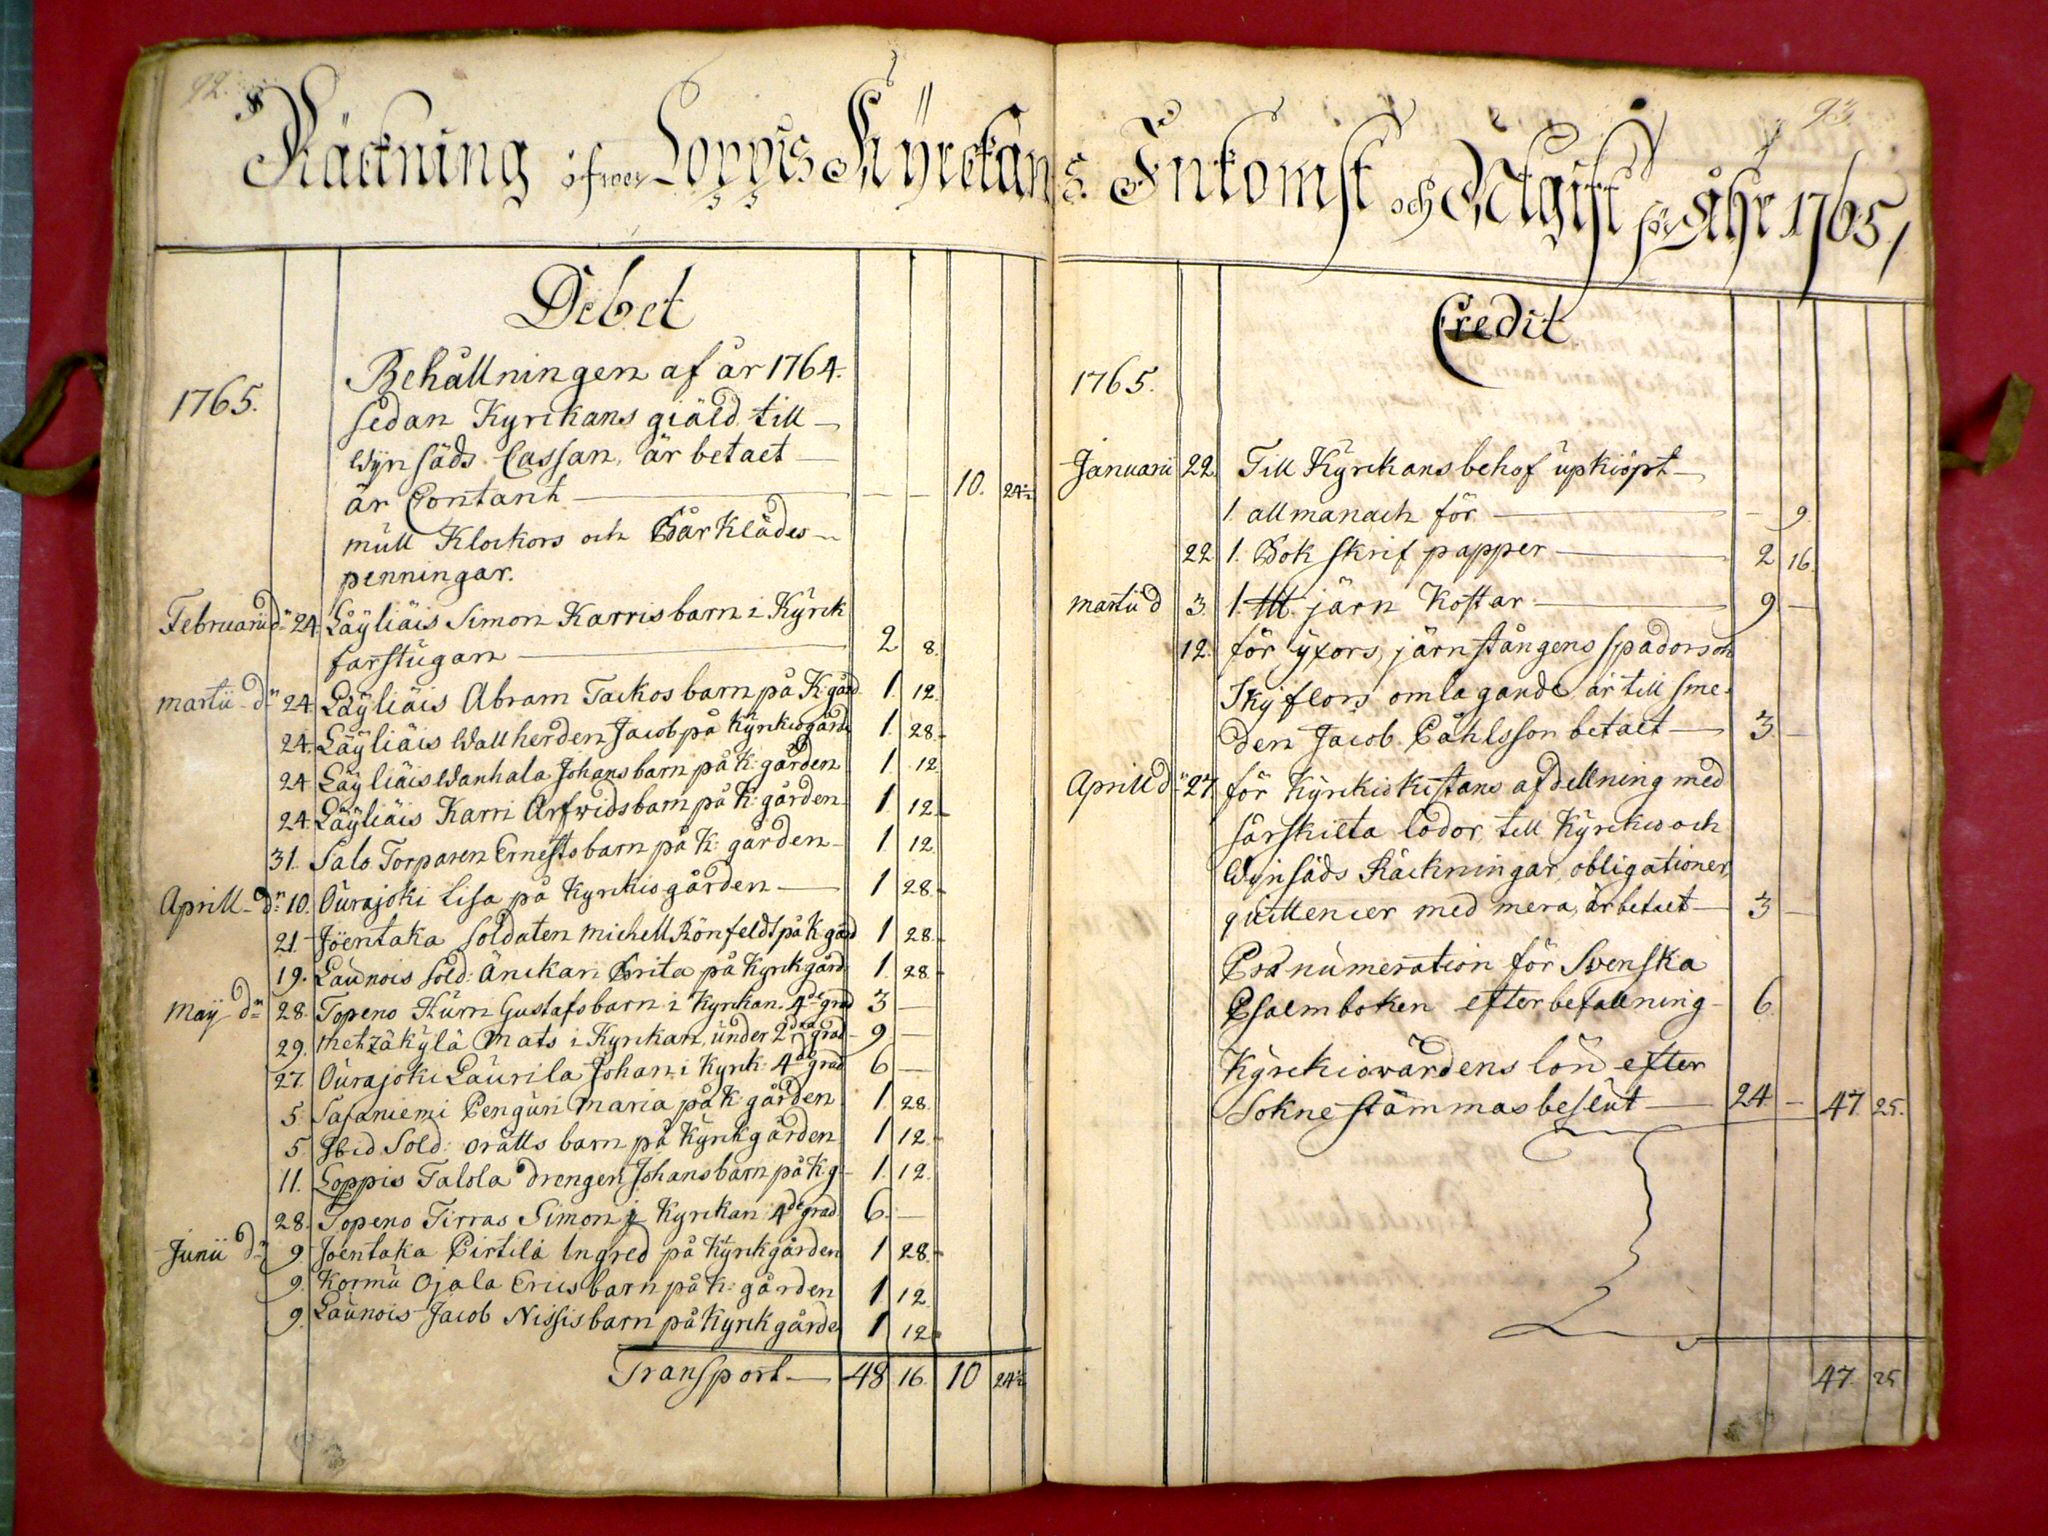 92.
Räckning öfwer Loppis Kyrckans Inkomst och Utgift för Åhr 1765.
93
Debet
1765. Behållningen af år 1764.
sedan Kyrckans giäld till
Wijnsäds Cassan, är betaet
är Contant — — — 10. 24½
mull Klockors och Bårklädes
penningar.
Februarii dn 24. Läyliäis Simon Karris barn i Kyrck
farstugan — 2 8.
martii dn 24. Läyliäis Abram Tackos barn på K:gård 1. 12.
24. Läyliäis Wallherden Jacob på Kyrckiogårde 1. 28.
24 Läyliäis Wanhala Johans barn på K: gården 1 12
24. Läyliäis Karri Arfwids barn på K: gården 1. 12.
31. Salo Torparen Ernests barn på K: gården 1 12.
Aprill dn 10. Ourajoki Lisa på Kyrckiogården — 1 28.
21 Joentaka Soldaten Michell Rönfeldt på K:gård 1 28.
19. Launois Sold: Änckan Brita på Kyrckgård 1. 28.
Maij dn 28. Topeno Hurri Gustafs barn i Kyrckan. 4de grad 3 —
29. Metzäkylä Mats i Kyrckan, under 2dra grad 9 —
27. Ourajoki Laurila Johan i Kyrck: 4de grad 6 —
5. Sajaniemi Penguri Maria på K: gården 1. 28.
5. Ibid Sold: Orätts barn på Kyrckgården 1 12.
11. Loppis Talola drengen Johans barn på K:g 1. 12.
28. Topeno Tirras Simon i Kyrckan 4de grad 6. —
Junii dn 9. Joentaka Pirtilä Ingred på Kyrckgården 1 28.
9. Kormu Ojala Erics barn på K: gården 1 12.
9. Launois Jacob Nissis barn på Kyrckgårde 1 12.
Transport — 48 16. 10 24½
Credit
1765.
Januarii 22. Till Kyrckans behof upkiöpt
1. allmanach för — — 9.
22 1. Bok skrif papper — 2 16.
martii d 3. 1. järn Kostar — 9 —
12. för yxors, järnstångens spadors och
Skyflors omlagande är till sme-
den Jacob Påhlsson betaet — 3 —
Aprill dn 27 för Kyrckiokistans afdellning med
särskilta lådor, till Kyrckio och
Wijnsäds Räckningar, obligationer
quittencier med mera, är betaet — 3 —
Prænumeration för Svenska
Psalmboken efter befallning — 6.
Kyrckiowärdens lön efter
Sokne stämmas beslut — 24 — 47. 25.
47. 25